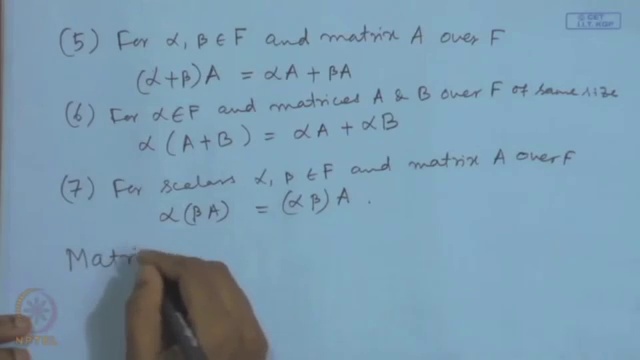 © CET
I.I.T. KGP
(5) For α, β ∈ F and matrix A over F
(α+β)A = αA + βA
(6) For α∈F and matrices A & B over F of same size
α(A+B) = αA + αB
(7) For scalars α, β ∈ F and matrix A over F
α(βA) = (αβ)A.
Matri
NPTEL